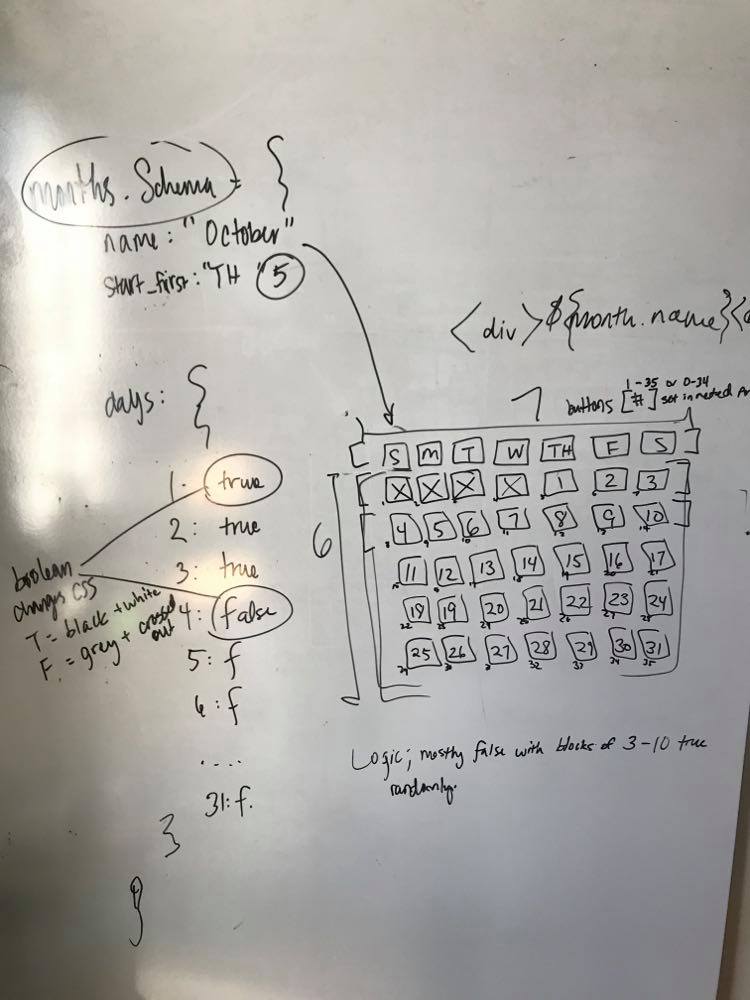 months.Schema = {
name: "October"
start_first: "TH" 5
<div>${month.name}<
days: {
1: true
2: true
3: true
4: false
5: f
6: f
....
31: f.
}
}
boolean
changes CSS
T = black + white
F. = grey + crossed
out
7
buttons [#] 1-35 or 0-34
set in nested Ar
6
[ S M T W TH F S ]
[ X X X X 1 2 3 ]
[ 4 5 6 7 8 9 10 ]
11 12 13 14 15 16 17
18 19 20 21 22 23 24
25 26 27 28 29 30 31
Logic; mostly false with blocks of 3-10 true
randomly.